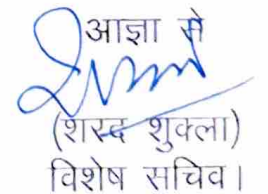 आज्ञा से
(शरद शुक्ला)
विशेष सचिव।